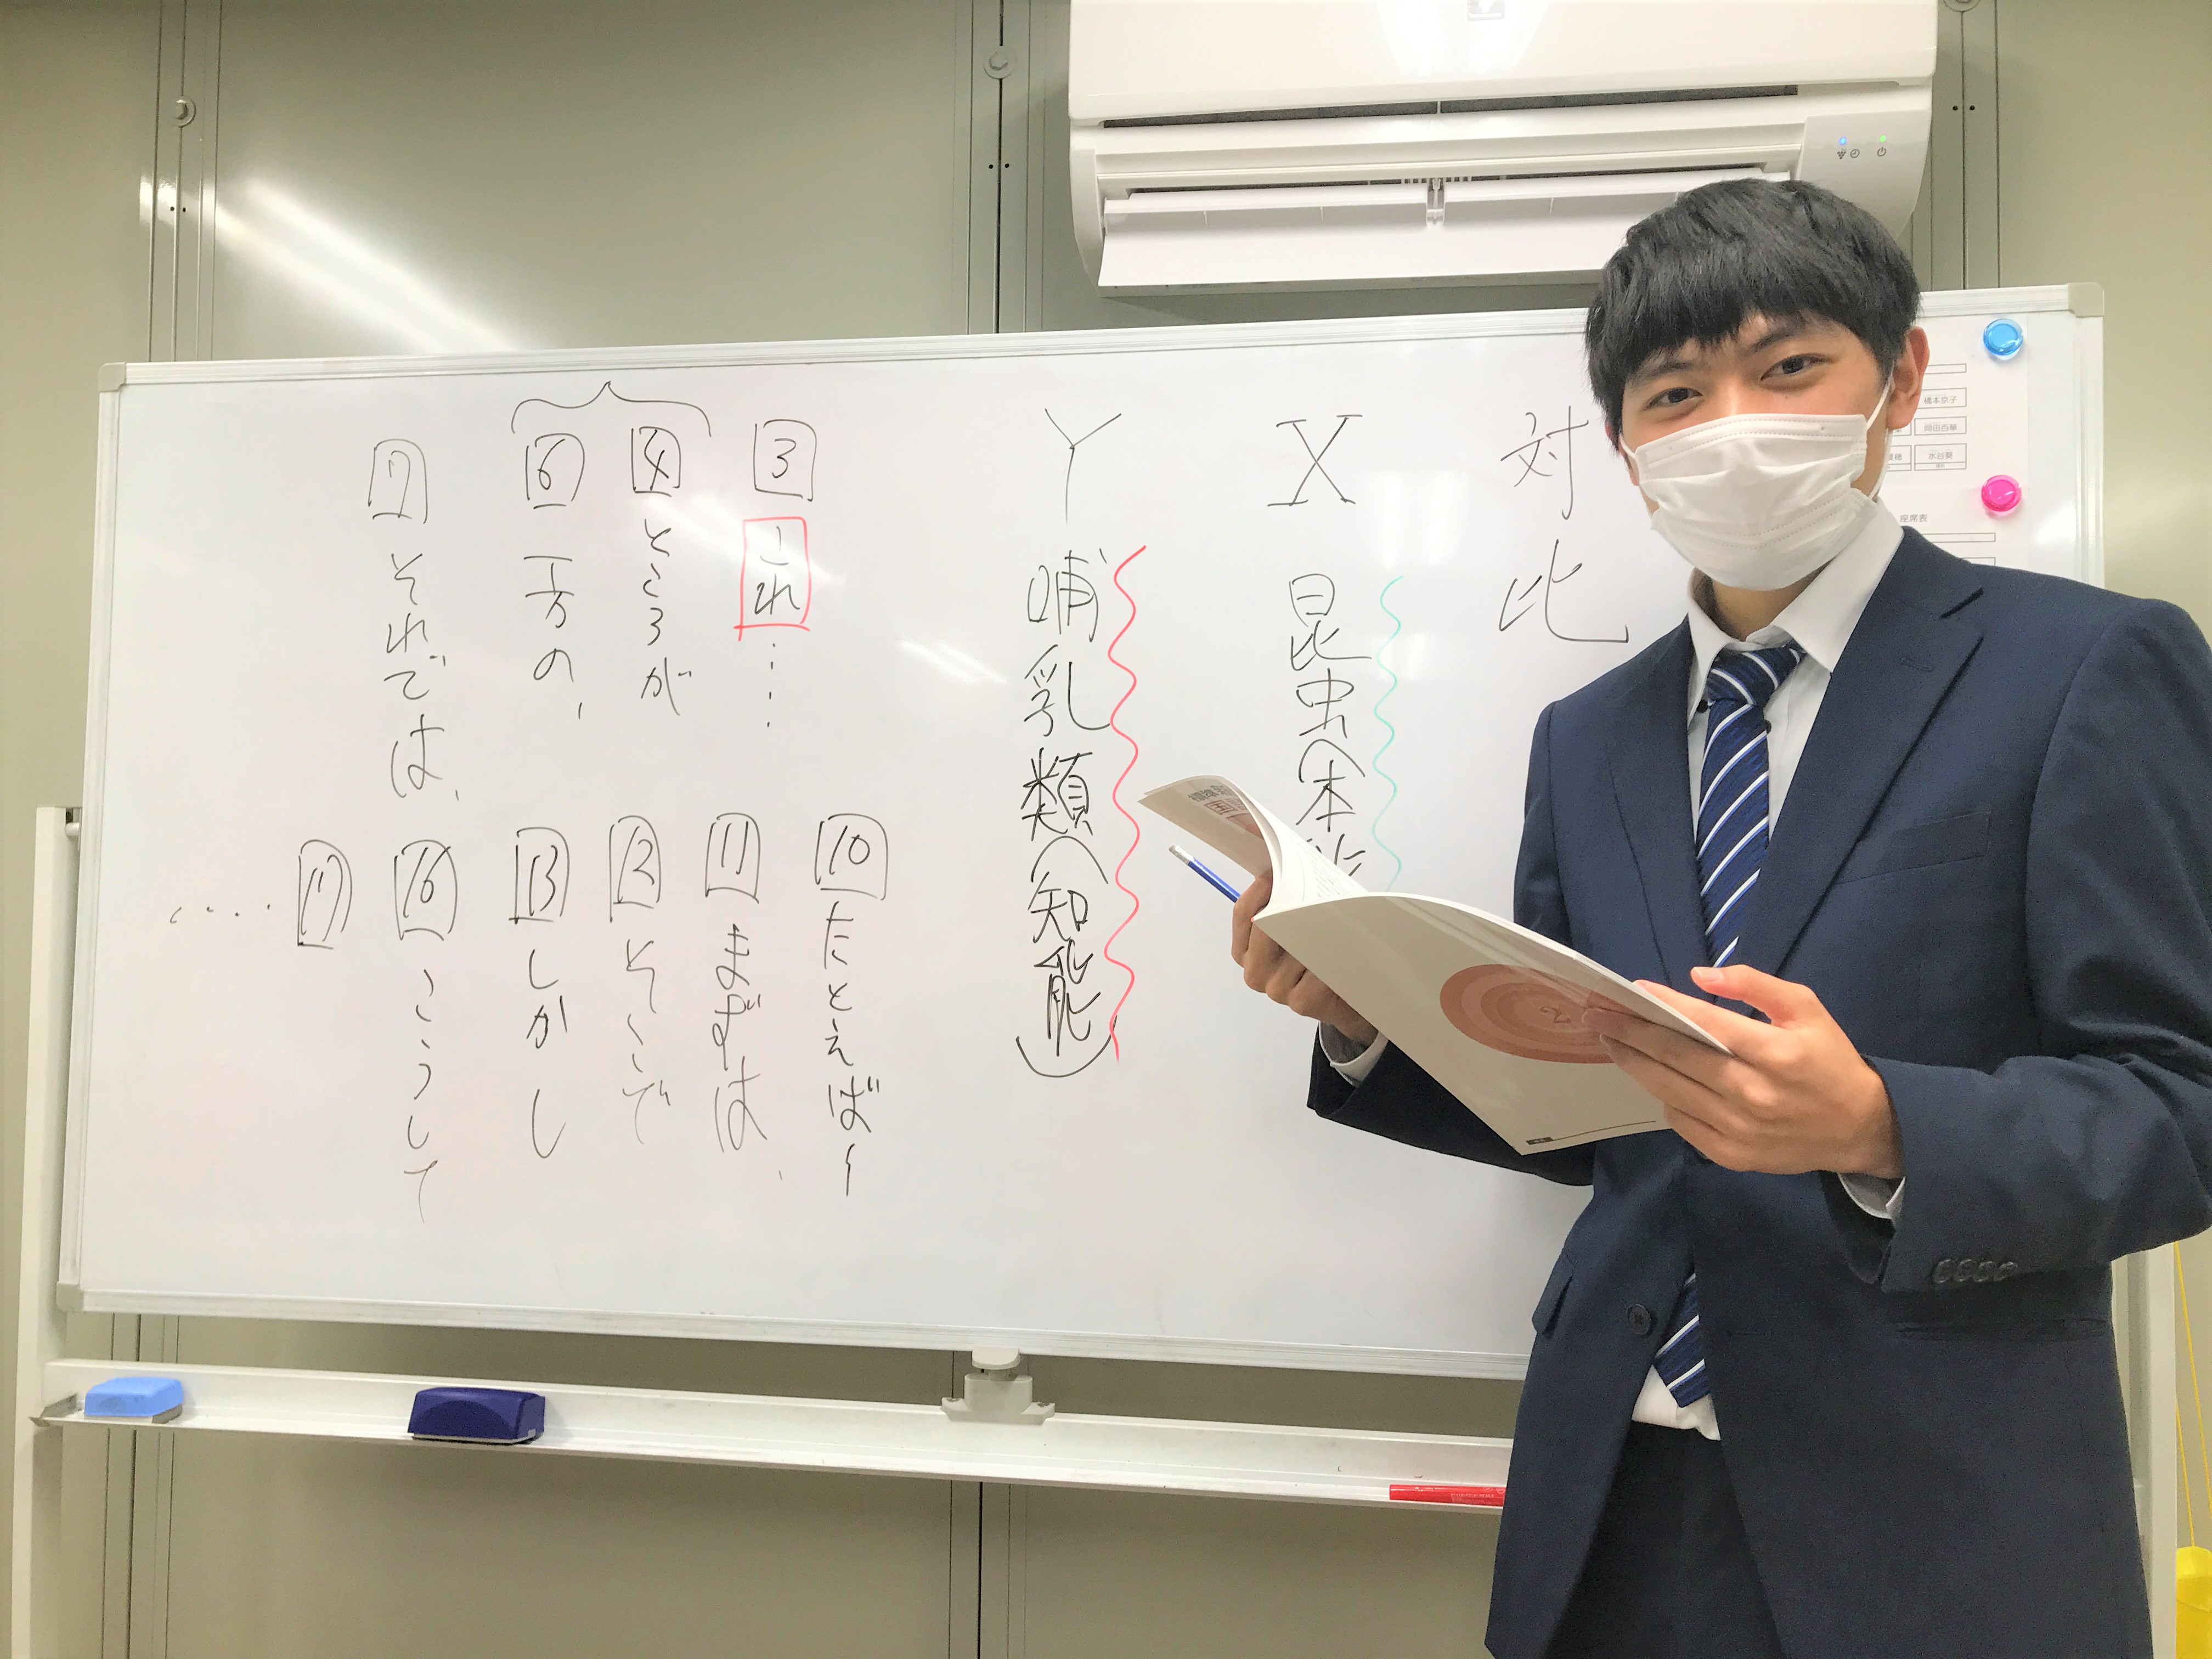 対比
X 昆虫(本能
Y 哺乳類(知能)
3 これ……
4 ところが
6 一方の、
7 それでは、
10 たとえば〜
11 まずは、
12 そこで
13 しかし
16 こうして
17 ‥‥
橋本京子
岡田百華
水谷葵
座席表